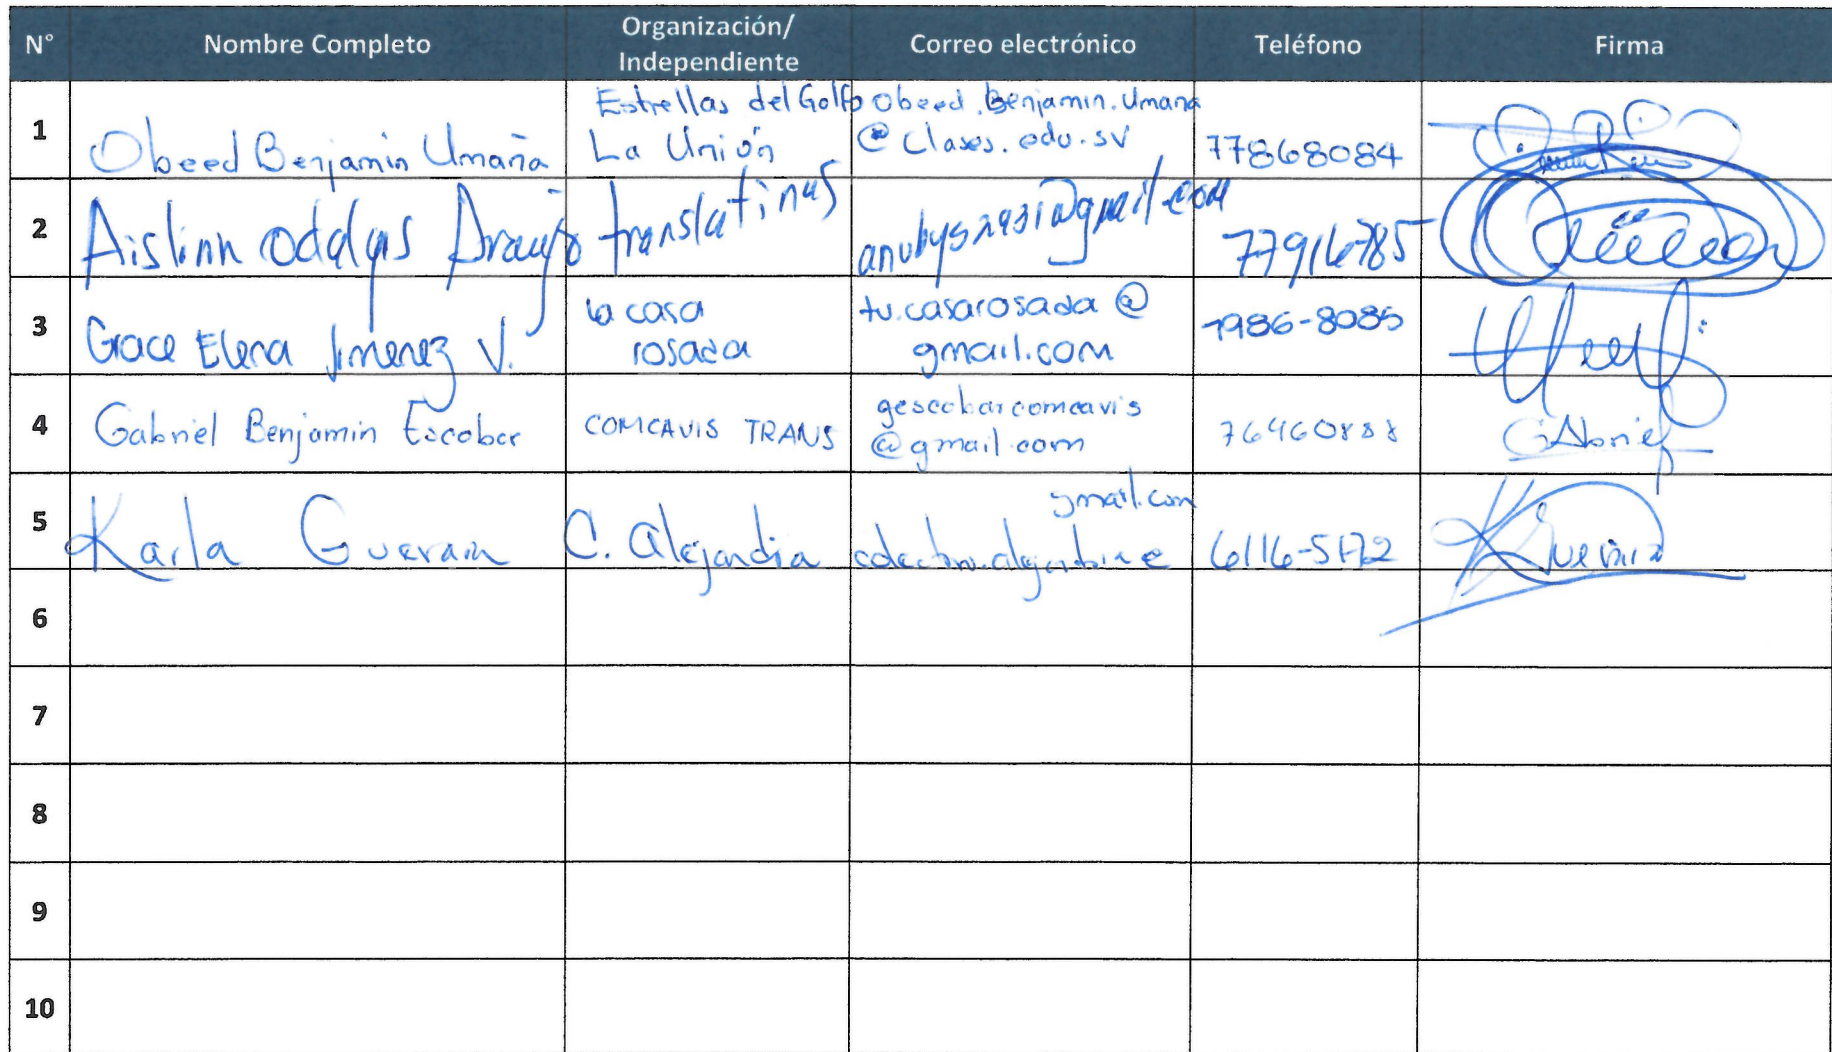 N° Nombre Completo Organización/ Independiente Correo electrónico Teléfono Firma
1 Obeed Benjamin Umaña Estrellas del Golfo La Unión Obeed.Benjamin.Umana @Clases.edu.sv 77868084
2 Aislinn oddalys Araujo translatinas 77916785
3 Grace Elena Jimenez V. la casa rosada tu.casarosada@ gmail.com 7986-8085
4 Gabriel Benjamin Escobar COMCAVIS TRANS gescobarcomcavis @gmail.com 76460888 GAbriel
5 Karla Guevara C. Alejandria gmail.com 6116-5172 KGuevara
6
7
8
9
10